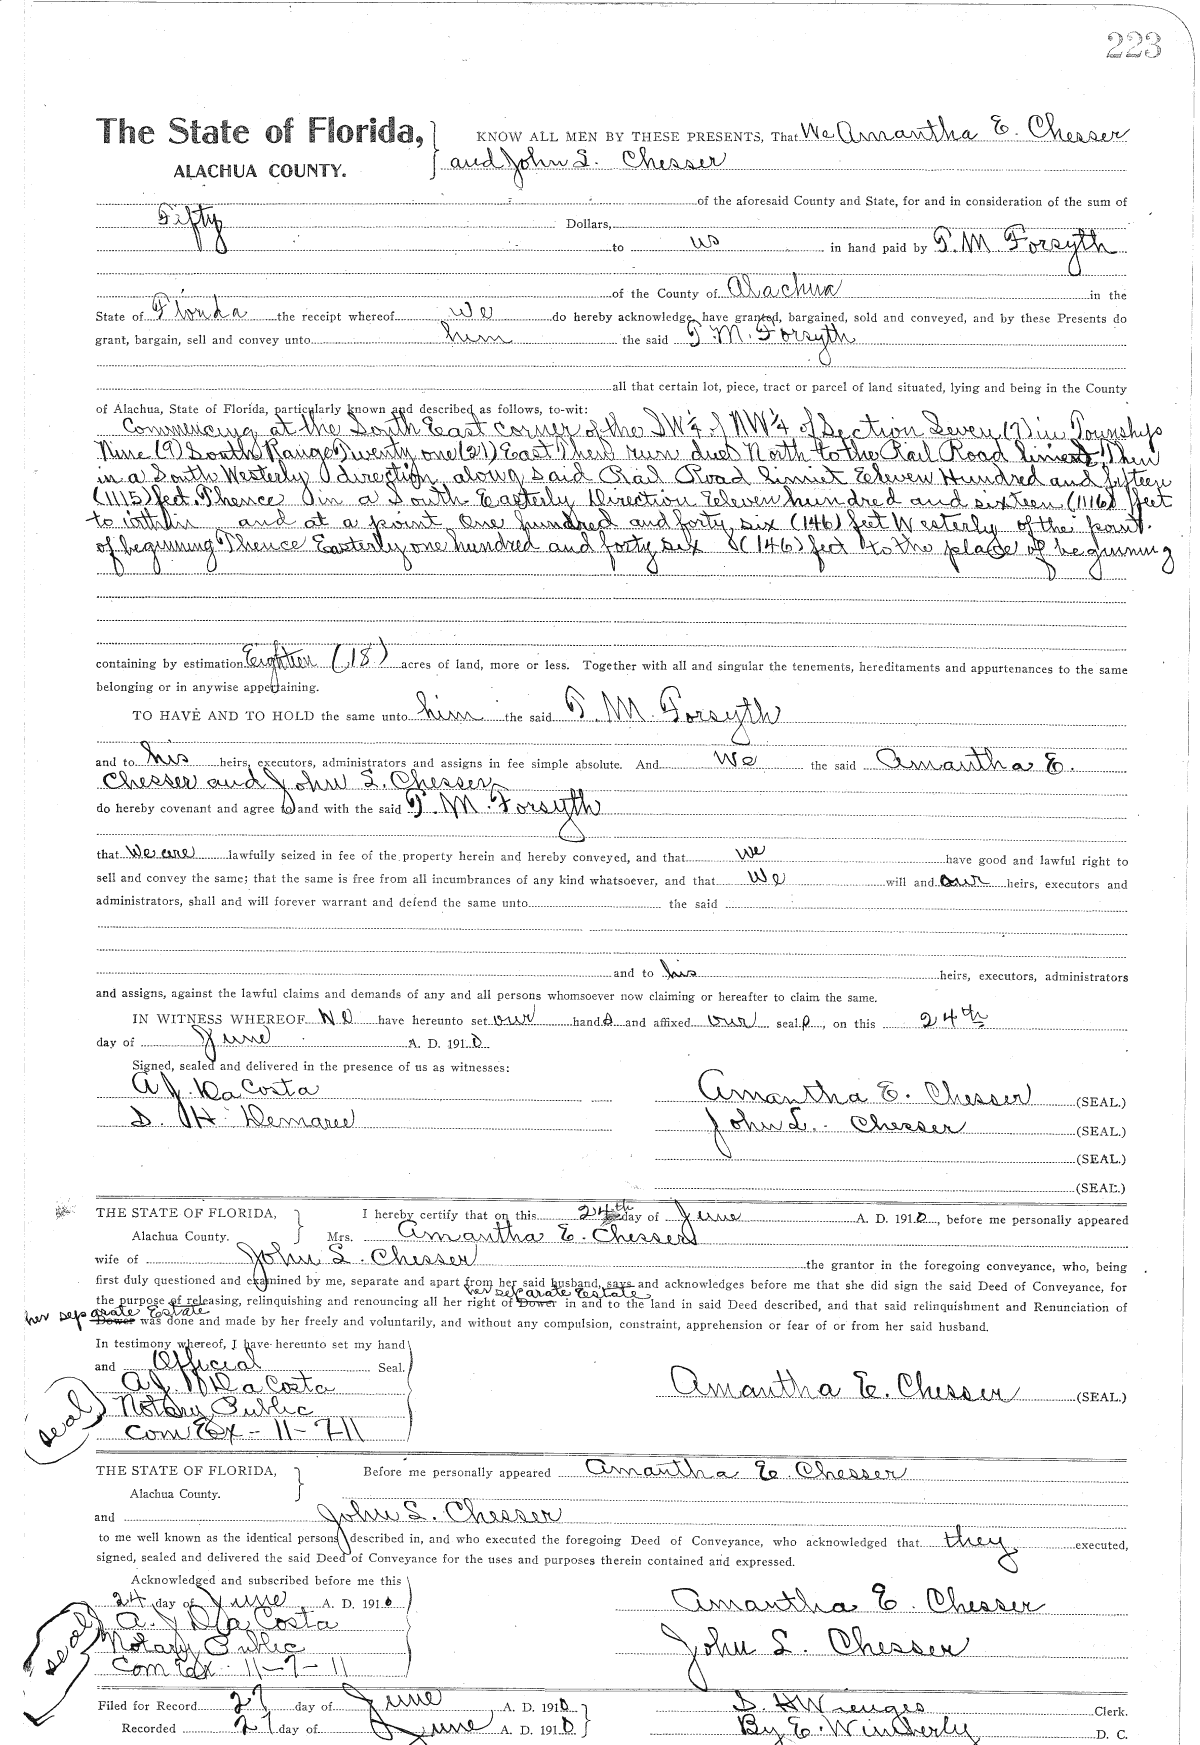 223
The State of Florida, KNOW ALL MEN BY THESE PRESENTS, That We Amantha E. Chesser
ALACHUA COUNTY. and John S. Chesser
of the aforesaid County and State, for and in consideration of the sum of
Fifty Dollars,
to us in hand paid by T. M. Forsyth
of the County of Alachua in the
State of Florida the receipt whereof we do hereby acknowledge, have granted, bargained, sold and conveyed, and by these Presents do
grant, bargain, sell and convey unto him the said T. M. Forsyth
all that certain lot, piece, tract or parcel of land situated, lying and being in the County
of Alachua, State of Florida, particularly known and described as follows, to-wit:
Commencing at the South East corner of the SW¼ of NW¼ of Section Seven (7) in Township
Nine (9) South Range Twenty one (21) East Then run due North to the Rail Road limit Then
in a South Westerly direction along said Rail Road limit Eleven Hundred and fifteen
(1115) feet. Thence in a South Easterly Direction Eleven hundred and sixteen (1116) feet
to within and at a point One hundred and forty six (146) feet Westerly of the point
of beginning Thence Easterly one hundred and forty six (146) feet to the place of beginning
containing by estimation Eighteen (18) acres of land, more or less. Together with all and singular the tenements, hereditaments and appurtenances to the same
belonging or in anywise appertaining.
TO HAVE AND TO HOLD the same unto him the said T. M. Forsyth
and to his heirs, executors, administrators and assigns in fee simple absolute. And We the said Amantha E.
Chesser and John S. Chesser
do hereby covenant and agree to and with the said T. M. Forsyth
that We are lawfully seized in fee of the property herein and hereby conveyed, and that we have good and lawful right to
sell and convey the same; that the same is free from all incumbrances of any kind whatsoever, and that We will and our heirs, executors and
administrators, shall and will forever warrant and defend the same unto the said
and to his heirs, executors, administrators
and assigns, against the lawful claims and demands of any and all persons whomsoever now claiming or hereafter to claim the same.
IN WITNESS WHEREOF We have hereunto set our hands and affixed our seals, on this 24th
day of June A. D. 1910
Signed, sealed and delivered in the presence of us as witnesses:
A J. Da Costa Amantha E. Chesser (SEAL.)
S. H. Demaree John S. Chesser (SEAL.)
(SEAL.)
(SEAL.)
THE STATE OF FLORIDA, I hereby certify that on this 24th day of June A. D. 1910, before me personally appeared
Alachua County. Mrs. Amantha E. Chesser
wife of John S. Chesser the grantor in the foregoing conveyance, who, being
first duly questioned and examined by me, separate and apart from her said husband, says and acknowledges before me that she did sign the said Deed of Conveyance, for
her separate Estate
the purpose of releasing, relinquishing and renouncing all her right of Dower in and to the land in said Deed described, and that said relinquishment and Renunciation of
her separate Estate
Dower was done and made by her freely and voluntarily, and without any compulsion, constraint, apprehension or fear of or from her said husband.
In testimony whereof, I have hereunto set my hand
and Official Seal.
A J Da Costa Amantha E. Chesser (SEAL.)
(seal) Notary Public
Com Ex - 11-7-11
THE STATE OF FLORIDA, Before me personally appeared Amantha E Chesser
Alachua County.
and John S. Chesser
to me well known as the identical persons described in, and who executed the foregoing Deed of Conveyance, who acknowledged that they executed,
signed, sealed and delivered the said Deed of Conveyance for the uses and purposes therein contained and expressed.
Acknowledged and subscribed before me this
24 day of June A. D. 1910 Amantha E. Chesser
A. J Da Costa
(seal) Notary Public John S. Chesser
Com Ex - 11-7-11
Filed for Record 27 day of June A. D. 1910 S. H Wienges Clerk.
Recorded 27 day of June A. D. 1910. By E. Wimberly D. C.